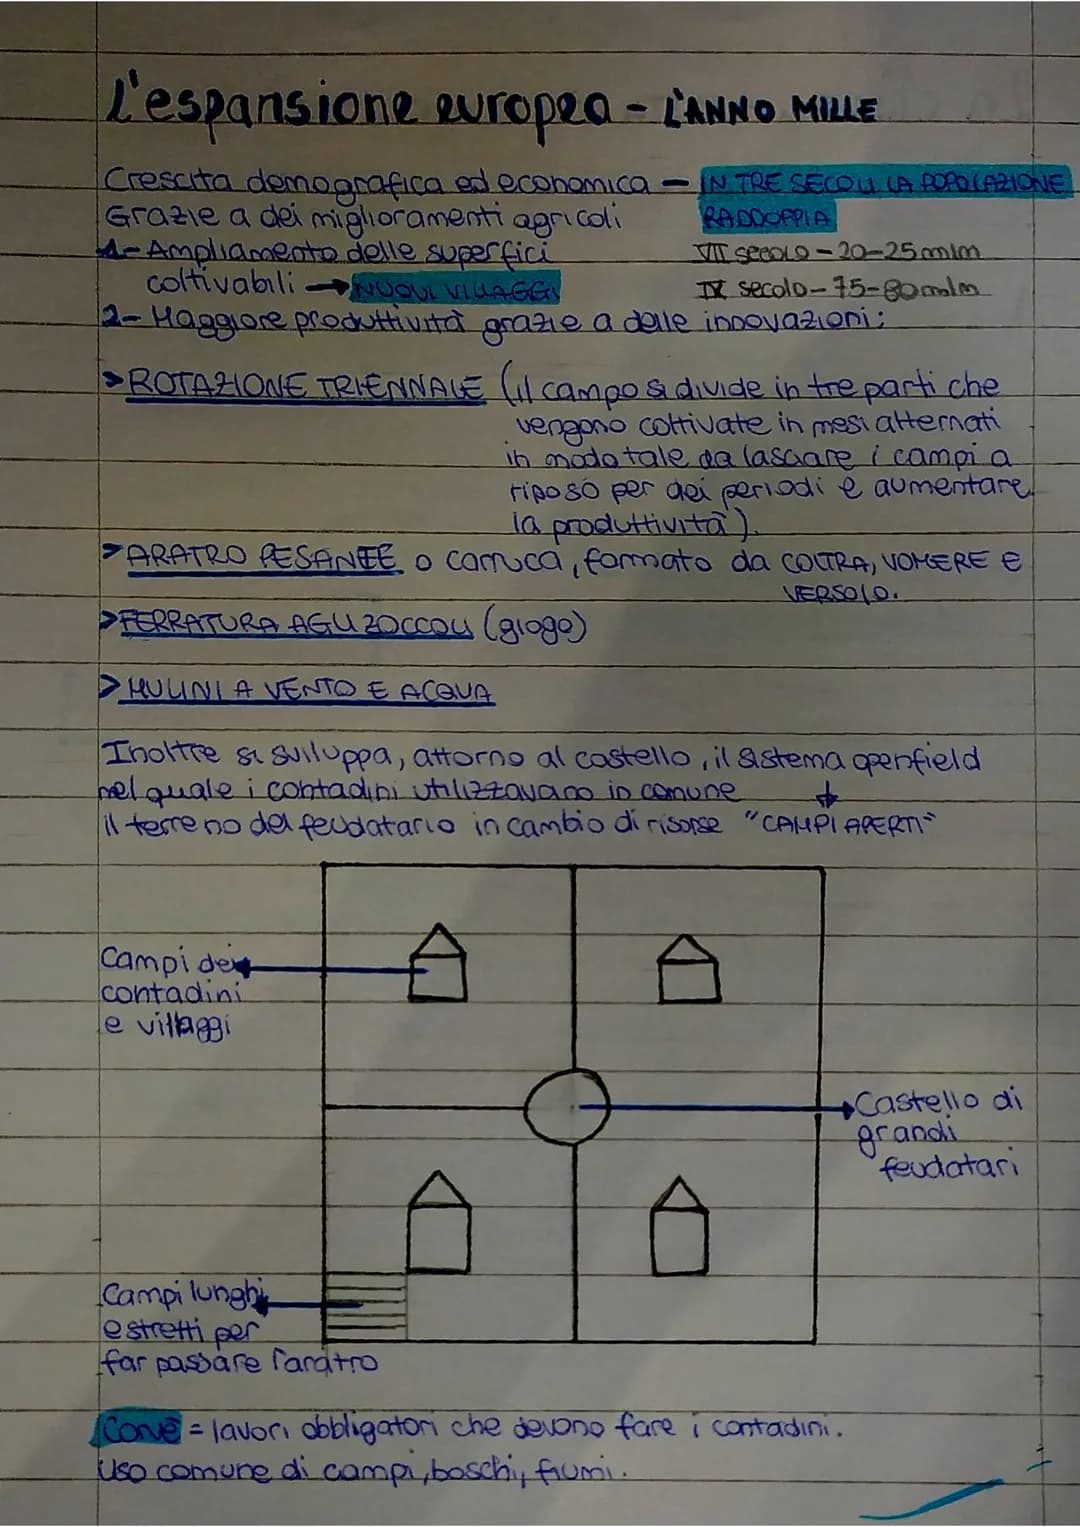 L'espansione europea - L'ANNO MILLE
Crescita demografica ed economica – IN TRE SECOLI LA POPOLAZIONE
Grazie a dei miglioramenti agricoli RADDOPPIA
1- Ampliamento delle superfici VII secolo - 20-25 mlm
coltivabili → NUOVI VILLAGGI IX secolo - 75-80 mlm
2- Maggiore produttività grazie a delle innovazioni:
>ROTAZIONE TRIENNALE (il campo si divide in tre parti che
vengono coltivate in mesi alternati
in modo tale da lasciare i campi a
riposo per dei periodi e aumentare
la produttività).
>ARATRO PESANTE o carruca, formato da COLTRA, VOMERE E
VERSOIO.
>FERRATURA AGLI ZOCCOLI (giogo)
>MULINI A VENTO E ACQUA
Inoltre si sviluppa, attorno al castello, il sistema openfield
nel quale i contadini utilizzavano in comune ↓
il terreno del feudatario in cambio di risorse "CAMPI APERTI"
Campi dei
contadini
e villaggi
Castello di
grandi
feudatari
Campi lunghi
e stretti per
far passare l'aratro
Corvé = lavori obbligatori che devono fare i contadini.
Uso comune di campi, boschi, fiumi.